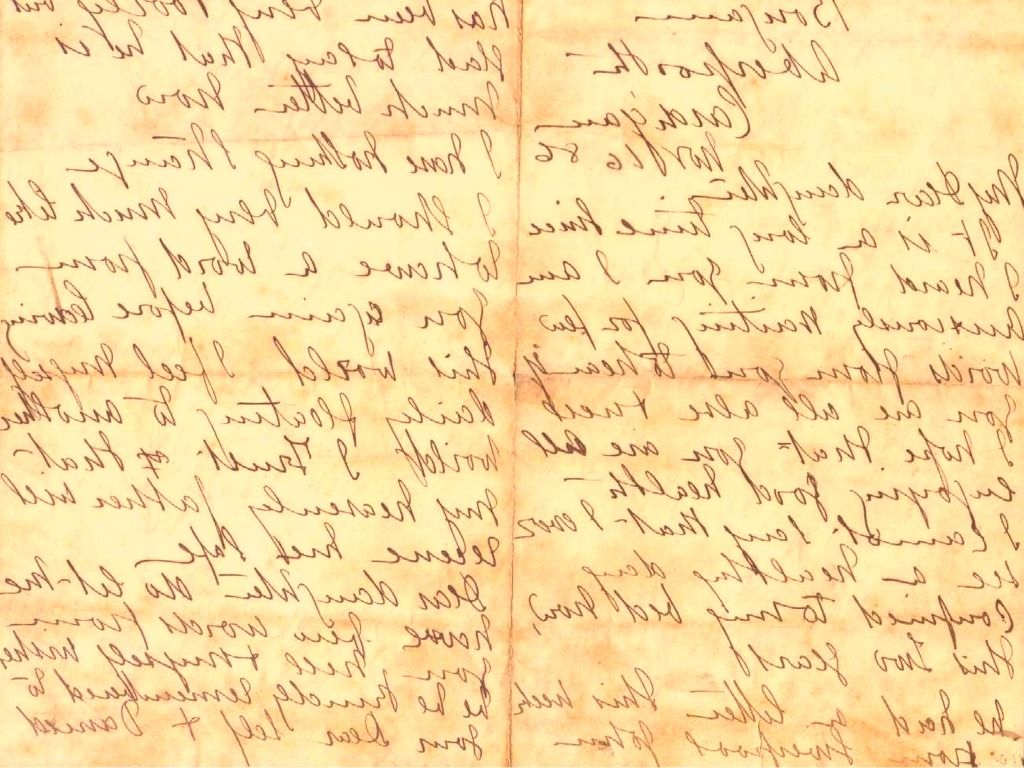 Aberporth
Cardigan
Nov 16 86
My Dear daughter
It is a long time since
I heard from you I am
anxiously waiting for few
words from you to hear if
you are all alive & well
I hope that you are all
enjoying good health
I cannot say that I ever
see a healthy day
Confined to my bed now,
this two years
We had a letter this week
from Liverpool John
has been very poorly but
glad to say that he is
much better now
I have nothing strange
I should very much like
to have a word from
you again before leaving
this world I feel myself
daily floating to another
world I trust that
my heavenly father will
receive me safe
Dear daughter do let me
have few words from
you Nell & myself wishes
to be kindly remembered to
your Dear self & Daniel